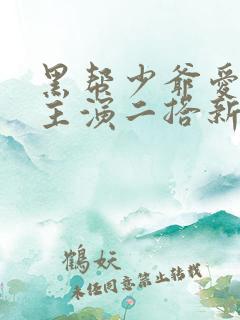 黑帮少爷爱
主演二搭新
鹤妖
未经同意禁止转载